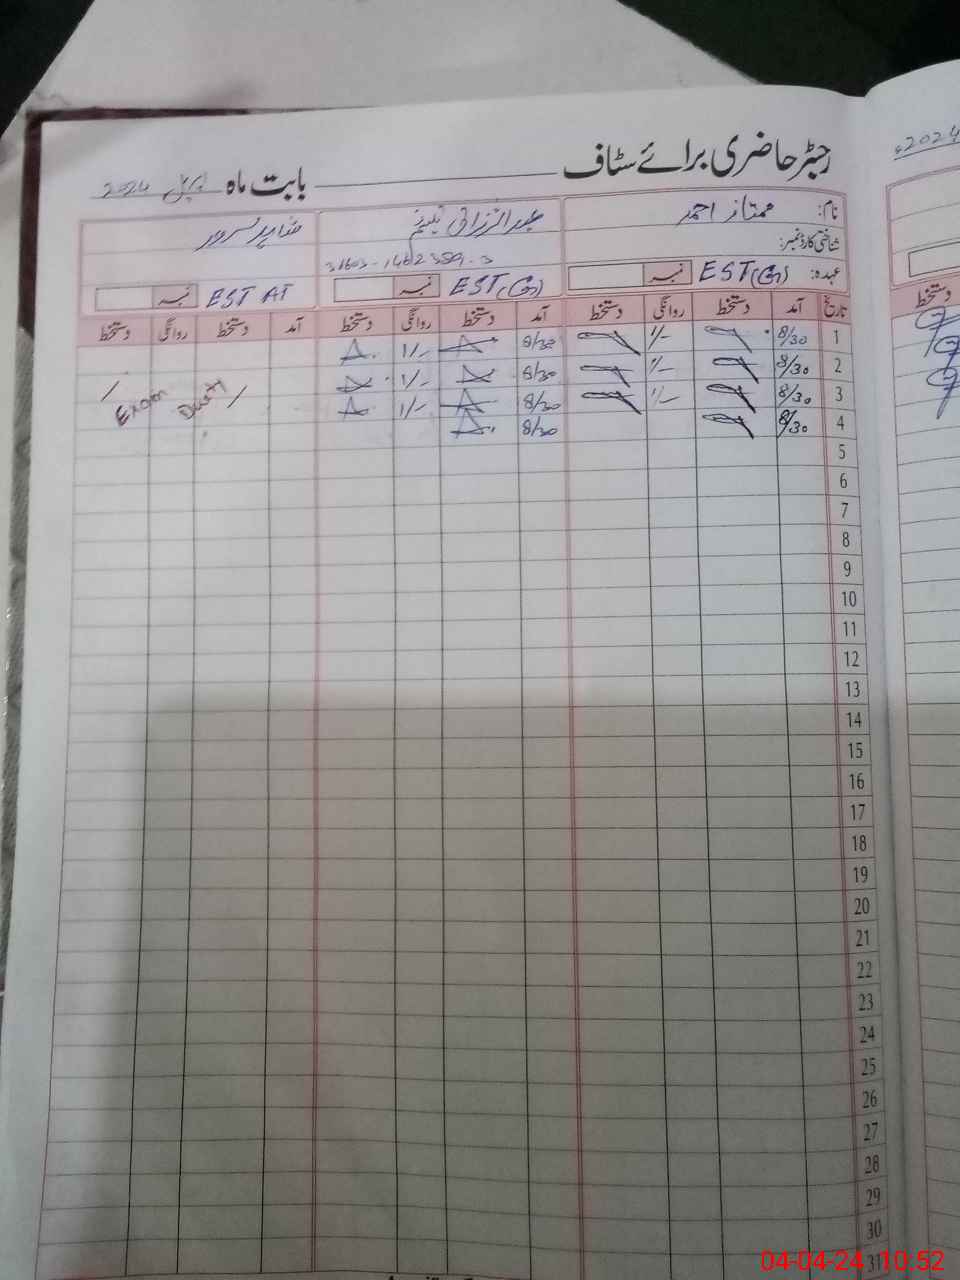 رجسٹر حاضری برائے سٹاف بابت ماہ اپریل 2024
2024ء
نام: ممتاز احمد عبدالرزاق
شناختی کارڈ نمبر: 31603-1462389-3
عہدہ: EST(G) نمبر EST(G) نمبر EST AT نمبر
تاریخ آمد دستخط روانگی دستخط آمد دستخط روانگی دستخط آمد دستخط روانگی دستخط
دستخط
1 8/30 1/- 8/30 1/-
2 8/30 1/- 8/30 1/-
3 8/30 1/- 8/30 1/- / Exam Duty /
4 8/30 8/30
5
6
7
8
9
10
11
12
13
14
15
16
17
18
19
20
21
22
23
24
25
26
27
28
29
30
31
04-04-24 10:52